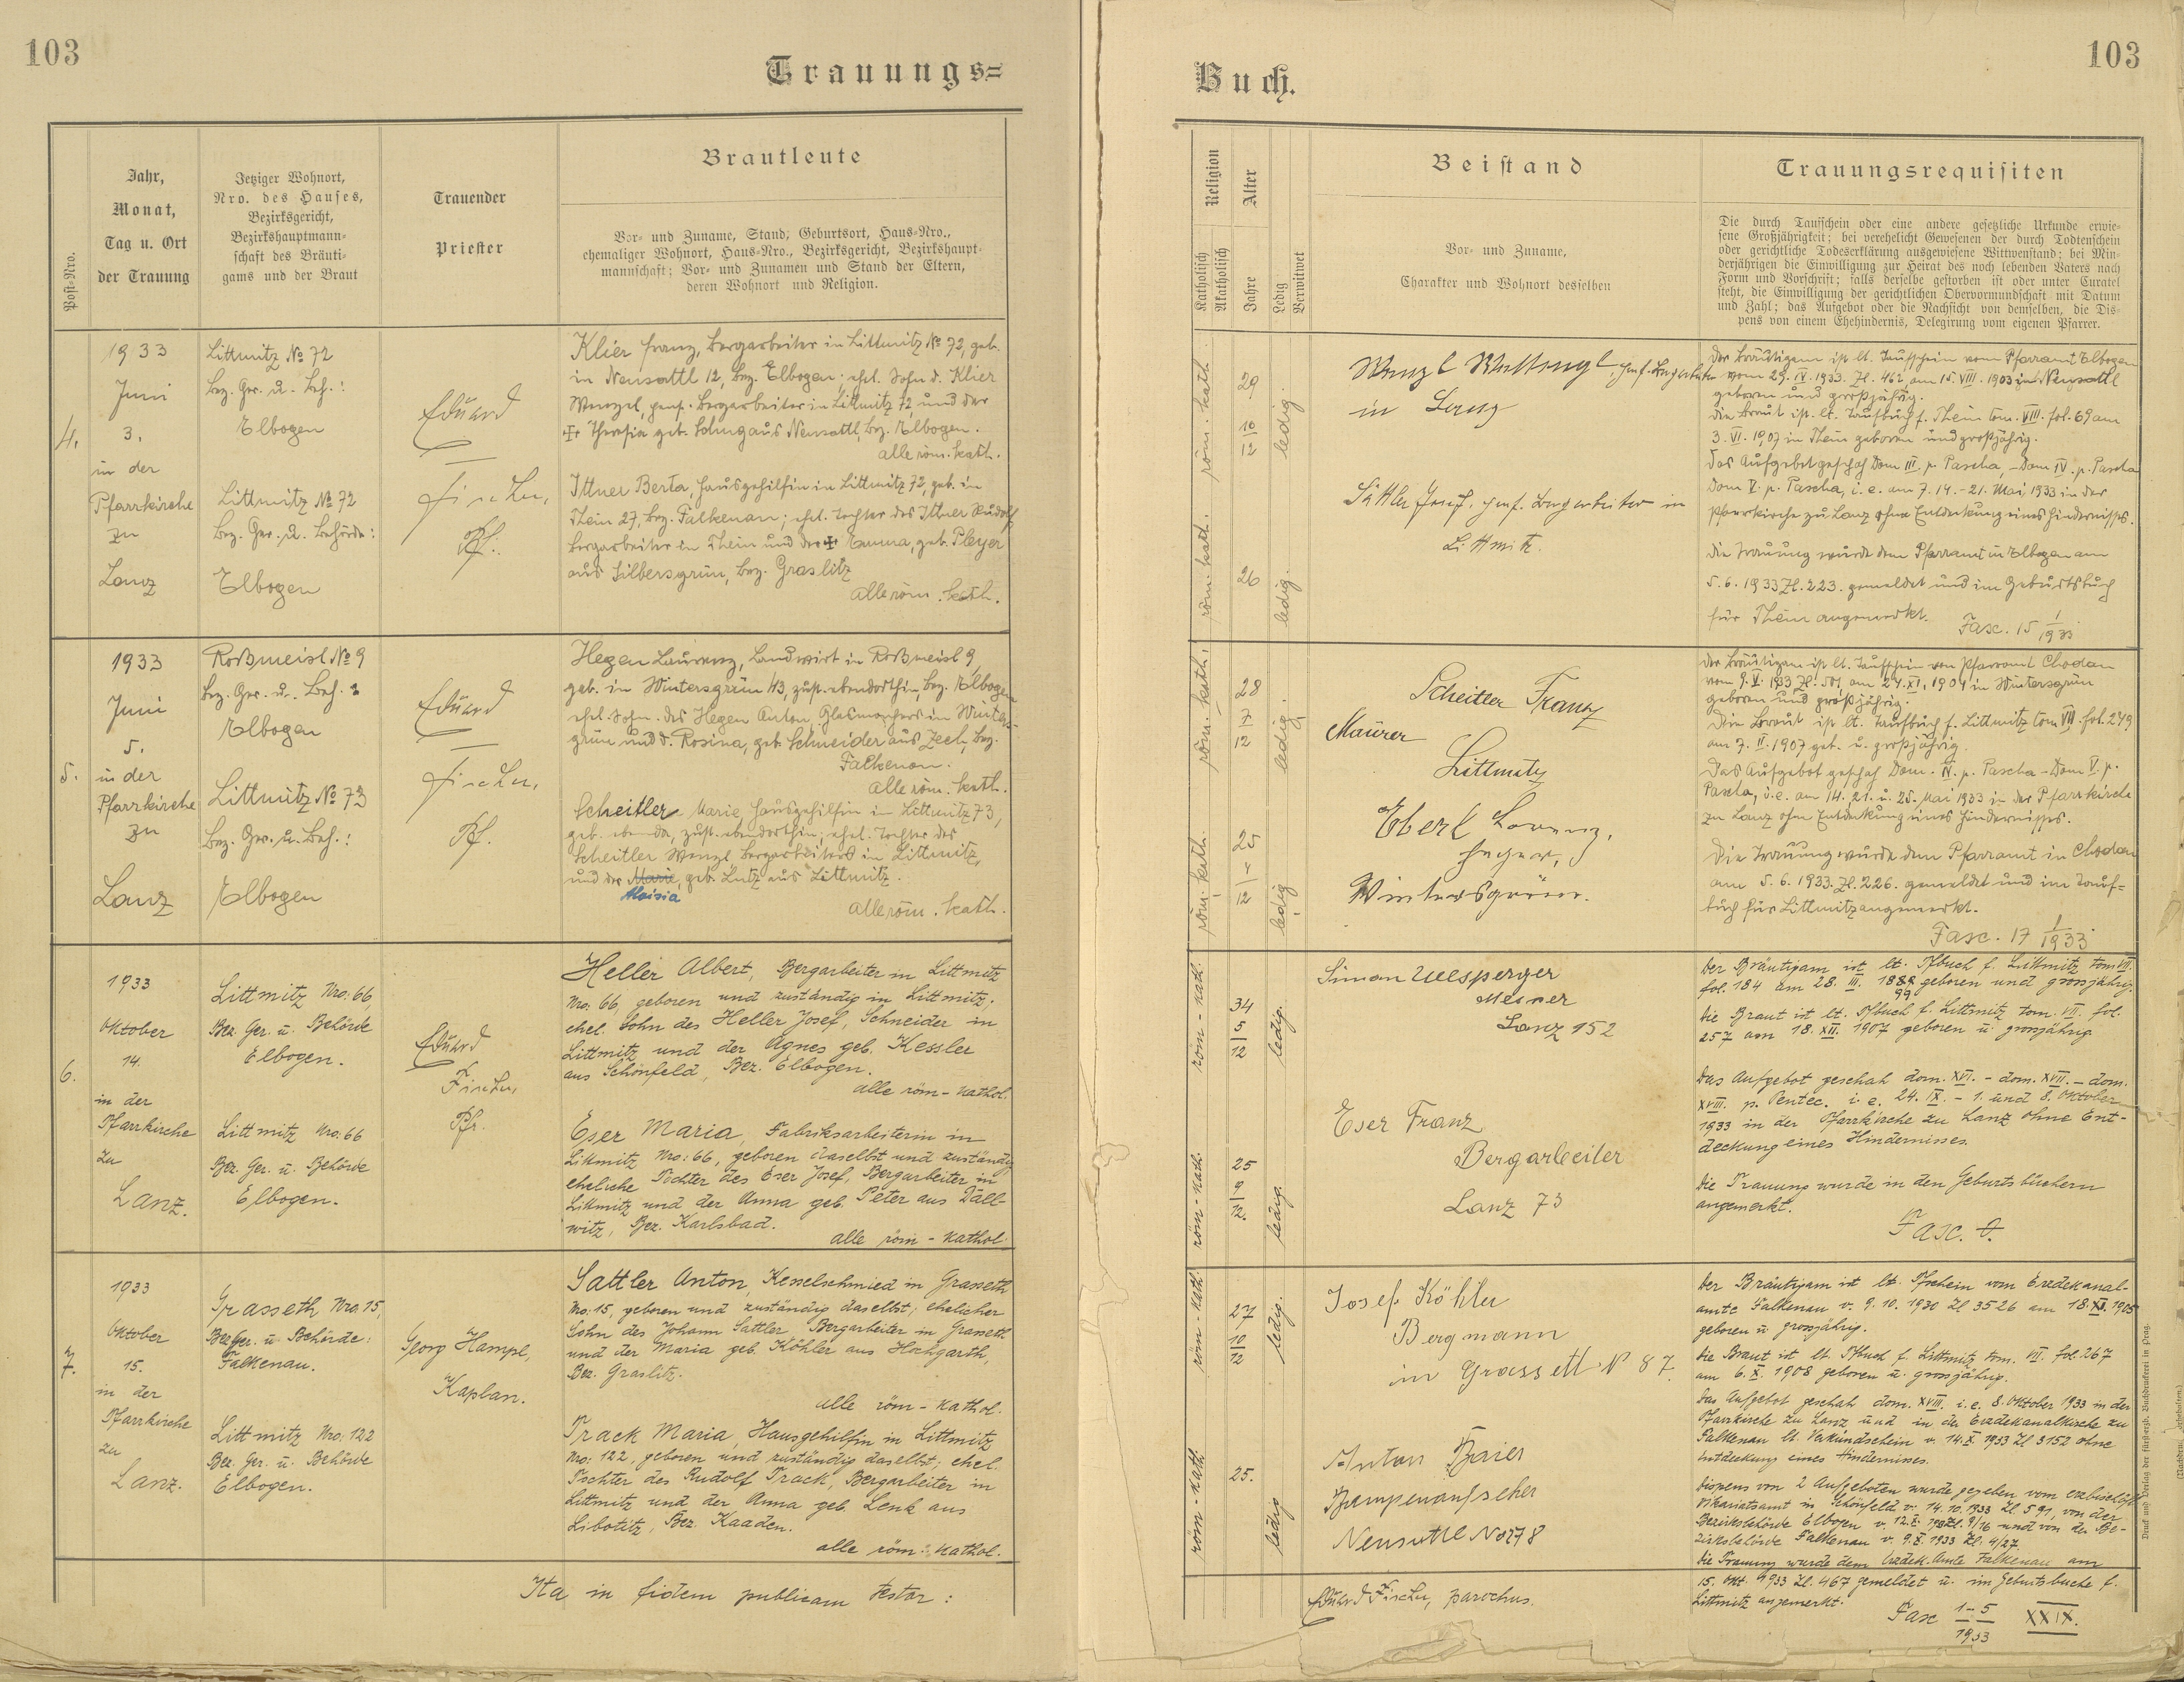 103
Trauungs=
Post-Nro.
Jahr,
Monat,
Tag u. Ort
der Trauung
Jetziger Wohnort,
Nro. des Hauses,
Bezirksgericht,
Bezirkshauptmann-
schaft des Bräuti-
gams und der Braut
Trauender
Priester
Brautleute
Vor- und Zuname, Stand, Geburtsort, Haus-Nro.,
ehemaliger Wohnort, Haus-Nro., Bezirksgericht, Bezirkshaupt-
mannschaft; Vor- und Zunamen und Stand der Eltern,
deren Wohnort und Religion.
4.
1933
Juni
3.
in der
Pfarrkirche
zu
Lanz
Littmitz № 72
Bez. Ger. u. Beh.:
Elbogen
Littmitz № 72
Bez. Ger. u. Behörde:
Elbogen
Eduard
Fischer,
Pf.
Klier Franz, Bergarbeiter in Littmitz № 72, geb.
in Neusattl 12, Bez. Elbogen; ehel. Sohn d. Klier
Wenzel, pens. Bergarbeiter in Littmitz 72, und der
✠ Theresia geb. aus Neusattl, Bez. Elbogen.
alle röm. kath.
Ittner Berta, Hausgehilfin in Littmitz 72, geb. in
Thein 27, Bez. Falkenau; ehel. Tochter des Ittner Rudolf
Bergarbeiter in Thein und der ✠ Emma, geb. Pleyer
aus Silbersgrün, Bez. Graslitz
alle röm. kath.
5.
1933
Juni
5.
in der
Pfarrkirche
zu
Lanz
Roßmeisl № 9
Bez. Ger. u. Beh.:
Elbogen
Littmitz № 73
Bez. Ger. u. Beh.:
Elbogen
Eduard
Fischer,
Pf.
Hegen Laurenz, Landwirt in Roßmeisl 9,
geb. in Wintersgrün 43, zust. ebendorthin, Bez. Elbogen
ehel. Sohn des Hegen Anton, Glasmachers in Winters-
grün und d. Rosina, geb. Schneider aus Zech, Bez.
Falkenau.
alle röm. kath.
Scheitler Marie Hausgehilfin in Littmitz 73,
geb. ebenda, zust. ebendorthin; ehel. Tochter des
Scheitler Wenzl Bergarbeiters in Littmitz,
und der Marie, geb. Lutz aus Littmitz.
Aloisia
alle röm. kath.
6.
1933
Oktober
14.
in der
Pfarrkirche
zu
Lanz.
Littmitz Nro: 66,
Bez. Ger. u. Behörde
Elbogen.
Littmitz Nro: 66
Bez. Ger. u. Behörde
Elbogen.
Eduard
Fischer,
Pfr.
Heller Albert, Bergarbeiter in Littmitz
Nro: 66, geboren und zuständig in Littmitz;
ehel. Sohn des Heller Josef, Schneider in
Littmitz und der Agnes geb. Kessler
aus Schönfeld, Bez. Elbogen.
alle röm-kathol.
Eser Maria, Fabriksarbeiterin in
Littmitz Nro: 66, geboren daselbst und zuständig
eheliche Tochter des Eser Josef, Bergarbeiter in
Littmitz und der Anna geb. Peter aus Dall-
witz, Bez. Karlsbad.
alle röm-kathol.
7.
1933
Oktober
15.
in der
Pfarrkirche
zu
Lanz.
Grasseth, Nro. 15,
Bez. Ger. u. Behörde:
Falkenau.
Littmitz Nro: 122
Bez. Ger. u. Behörde
Elbogen.
Georg Hampl,
Kaplan.
Sattler Anton, Kesselschmied in Grasseth
Nro: 15, geboren und zuständig daselbst; ehelicher
Sohn des Johann Sattler, Bergarbeiter in Grasseth
und der Maria geb. Köhler aus Hochgarth,
Bez. Graslitz.
alle röm-kathol.
Track Maria, Hausgehilfin in Littmitz
Nro: 122, geboren und zuständig daselbst; ehel.
Tochter des Rudolf Track, Bergarbeiter in
Littmitz und der Anna geb. Lenk aus
Libotitz, Bez. Kaaden.
alle röm-kathol.
Ita in fidem publicam testor:
103
Buch.
Religion
Katholisch
Akatholisch
Alter
Jahre
Ledig
Verwitwet
Beistand
Vor- und Zuname,
Charakter und Wohnort desselben
Trauungsrequisiten
Die durch Taufschein oder eine andere gesetzliche Urkunde erwie-
sene Großjährigkeit; bei verehelicht Gewesenen der durch Todtenschein
oder gerichtliche Todeserklärung ausgewiesene Wittwenstand; bei Min-
derjährigen die Einwilligung zur Heirat des noch lebenden Vaters nach
Form und Vorschrift; falls derselbe gestorben ist oder unter Curatel
steht, die Einwilligung der gerichtlichen Obervormundschaft mit Datum
und Zahl; das Aufgebot oder die Nachsicht von demselben, die Dis-
pens von einem Ehehindernis, Delegirung vom eigenen Pfarrer.
röm. kath.
29
10
12
ledig
röm. kath.
26
ledig.
Wenzl pens. Bergarbeiter
in
Sattler Josef, pens. Bergarbeiter in
Littmitz.
Der Bräutigam ist lt. Taufschein vom Pfarramt Elbogen
vom 29. IV. 1933. Zl. 462, am 15. VIII. 1903 in Neusattl
geboren und großjährig.
Die Braut ist lt. Taufbuch f. Thein tom. VIII. fol. 69 am
3. VI. 1907 in Thein geboren und großjährig.
Das Aufgebot geschah Dom III. p. Pascha, – Dom IV. p. Pascha
Dom V. p. Pascha, i. e. am 7. 14. – 21. Mai 1933 in der
Pfarrkirche zu Lanz ohne Entdeckung eines Hindernisses.
Die Trauung wurde dem Pfarramt in Elbogen am
5. 6. 1933 Zl. 223. gemeldet und im Geburtsbuch
für Thein angemerkt. Fasc. 15 1/1933
röm. kath.
28
7
12
ledig.
röm. kath.
25
12
ledig
Scheitler Franz
Maurer
Littmitz
Eberl Lorenz,
Heger,
Wintersgrün.
Der Bräutigam ist lt. Taufschein von Pfarramt Chodau
vom 9. V. 1933 Zl. 501, am 24. XI. 1904 in Wintersgrün
geboren und großjährig.
Die Braut ist lt. Taufbuch f. Littmitz tom VII. fol. 249
am 7. II. 1907 geb. u. großjährig.
Das Aufgebot geschah Dom. IV. p. Pascha – Dom V. p.
Pascha, i. e. am 14. 21. u. 25. Mai 1933 in der Pfarrkirche
zu Lanz ohne Entdeckung eines Hindernisses.
Die Trauung wurde dem Pfarramt in Chodau
am 5. 6. 1933. Zl. 226. gemeldet und im Tauf=
buch für Littmitz angemerkt.
Fasc. 17 1/1933
röm-kath.
34
5
12
ledig.
röm-kath.
25
9
12.
ledig.
Simon Ullsperger
Mesner
Lanz 152
Eser Franz
Bergarbeiter
Lanz 73
Der Bräutigam ist lt. Tfbuch f. Littmitz tom VII.
fol. 184 am 28. III. 1888 geboren und grossjährig.
99
Die Braut ist lt. Tfbuch f. Littmitz tom. VII. fol.
257 am 18. XII. 1907 geboren u. grossjährig
Das Aufgebot geschah dom. XVI. – dom. XVII. – dom.
XVIII. p. Pentec. i. e. 24. IX. – 1. und 8. Oktober
1933 in der Pfarrkirche zu Lanz ohne Ent-
deckung eines Hindernisses.
Die Trauung wurde in den Geburtsbüchern
angemerkt.
Fasc. 0.
röm-kath.
27
10
12
ledig.
röm-kath.
25.
ledig
Josef Köhler
Bergmann
in Grassett № 87.
Anton Baier
Pumpenaufseher
Neusattl No 278
Der Bräutigam ist lt. Tfschein vom Erzdekanal-
amte Falkenau v. 9. 10. 1930 Zl 3526 am 18. XI. 1905
geboren u. grossjährig.
Die Braut ist lt. Tfbuch f. Littmitz tom. VII. fol. 267
am 6. X. 1908 geboren u. grossjährig.
Das Aufgebot geschah dom. XVIII. i. e. 8. Oktober 1933 in der
Pfarrkirche zu Lanz und in der Erzdekanalkirche zu
Falkenau lt. Verkündschein v. 14. X. 1933 Zl 3152 ohne
Entdeckung eines Hindernisses.
Dispens von 2 Aufgeboten wurde gegeben vom erzbischöfl.
Vikariatsamt in Schönfeld v. 14. 10. 1933 Zl 591, von der
Bezirksbehörde Elbogen v. 12. X. 1933 Zl. 9/16 und von der Be-
zirksbehörde Falkenau v. 9. X. 1933 Zl. 4/27.
Die Trauung wurde dem Erzdek. Amte Falkenau am
15. Okt. 1933 Zl. 467 gemeldet u. im Geburtsbuche f.
Littmitz angemerkt.
Fasc 1–5/1933 XXIX.
Eduard Fischer, parochus.
Druck und Verlag der fürsterzb. Buchdruckerei in Prag.